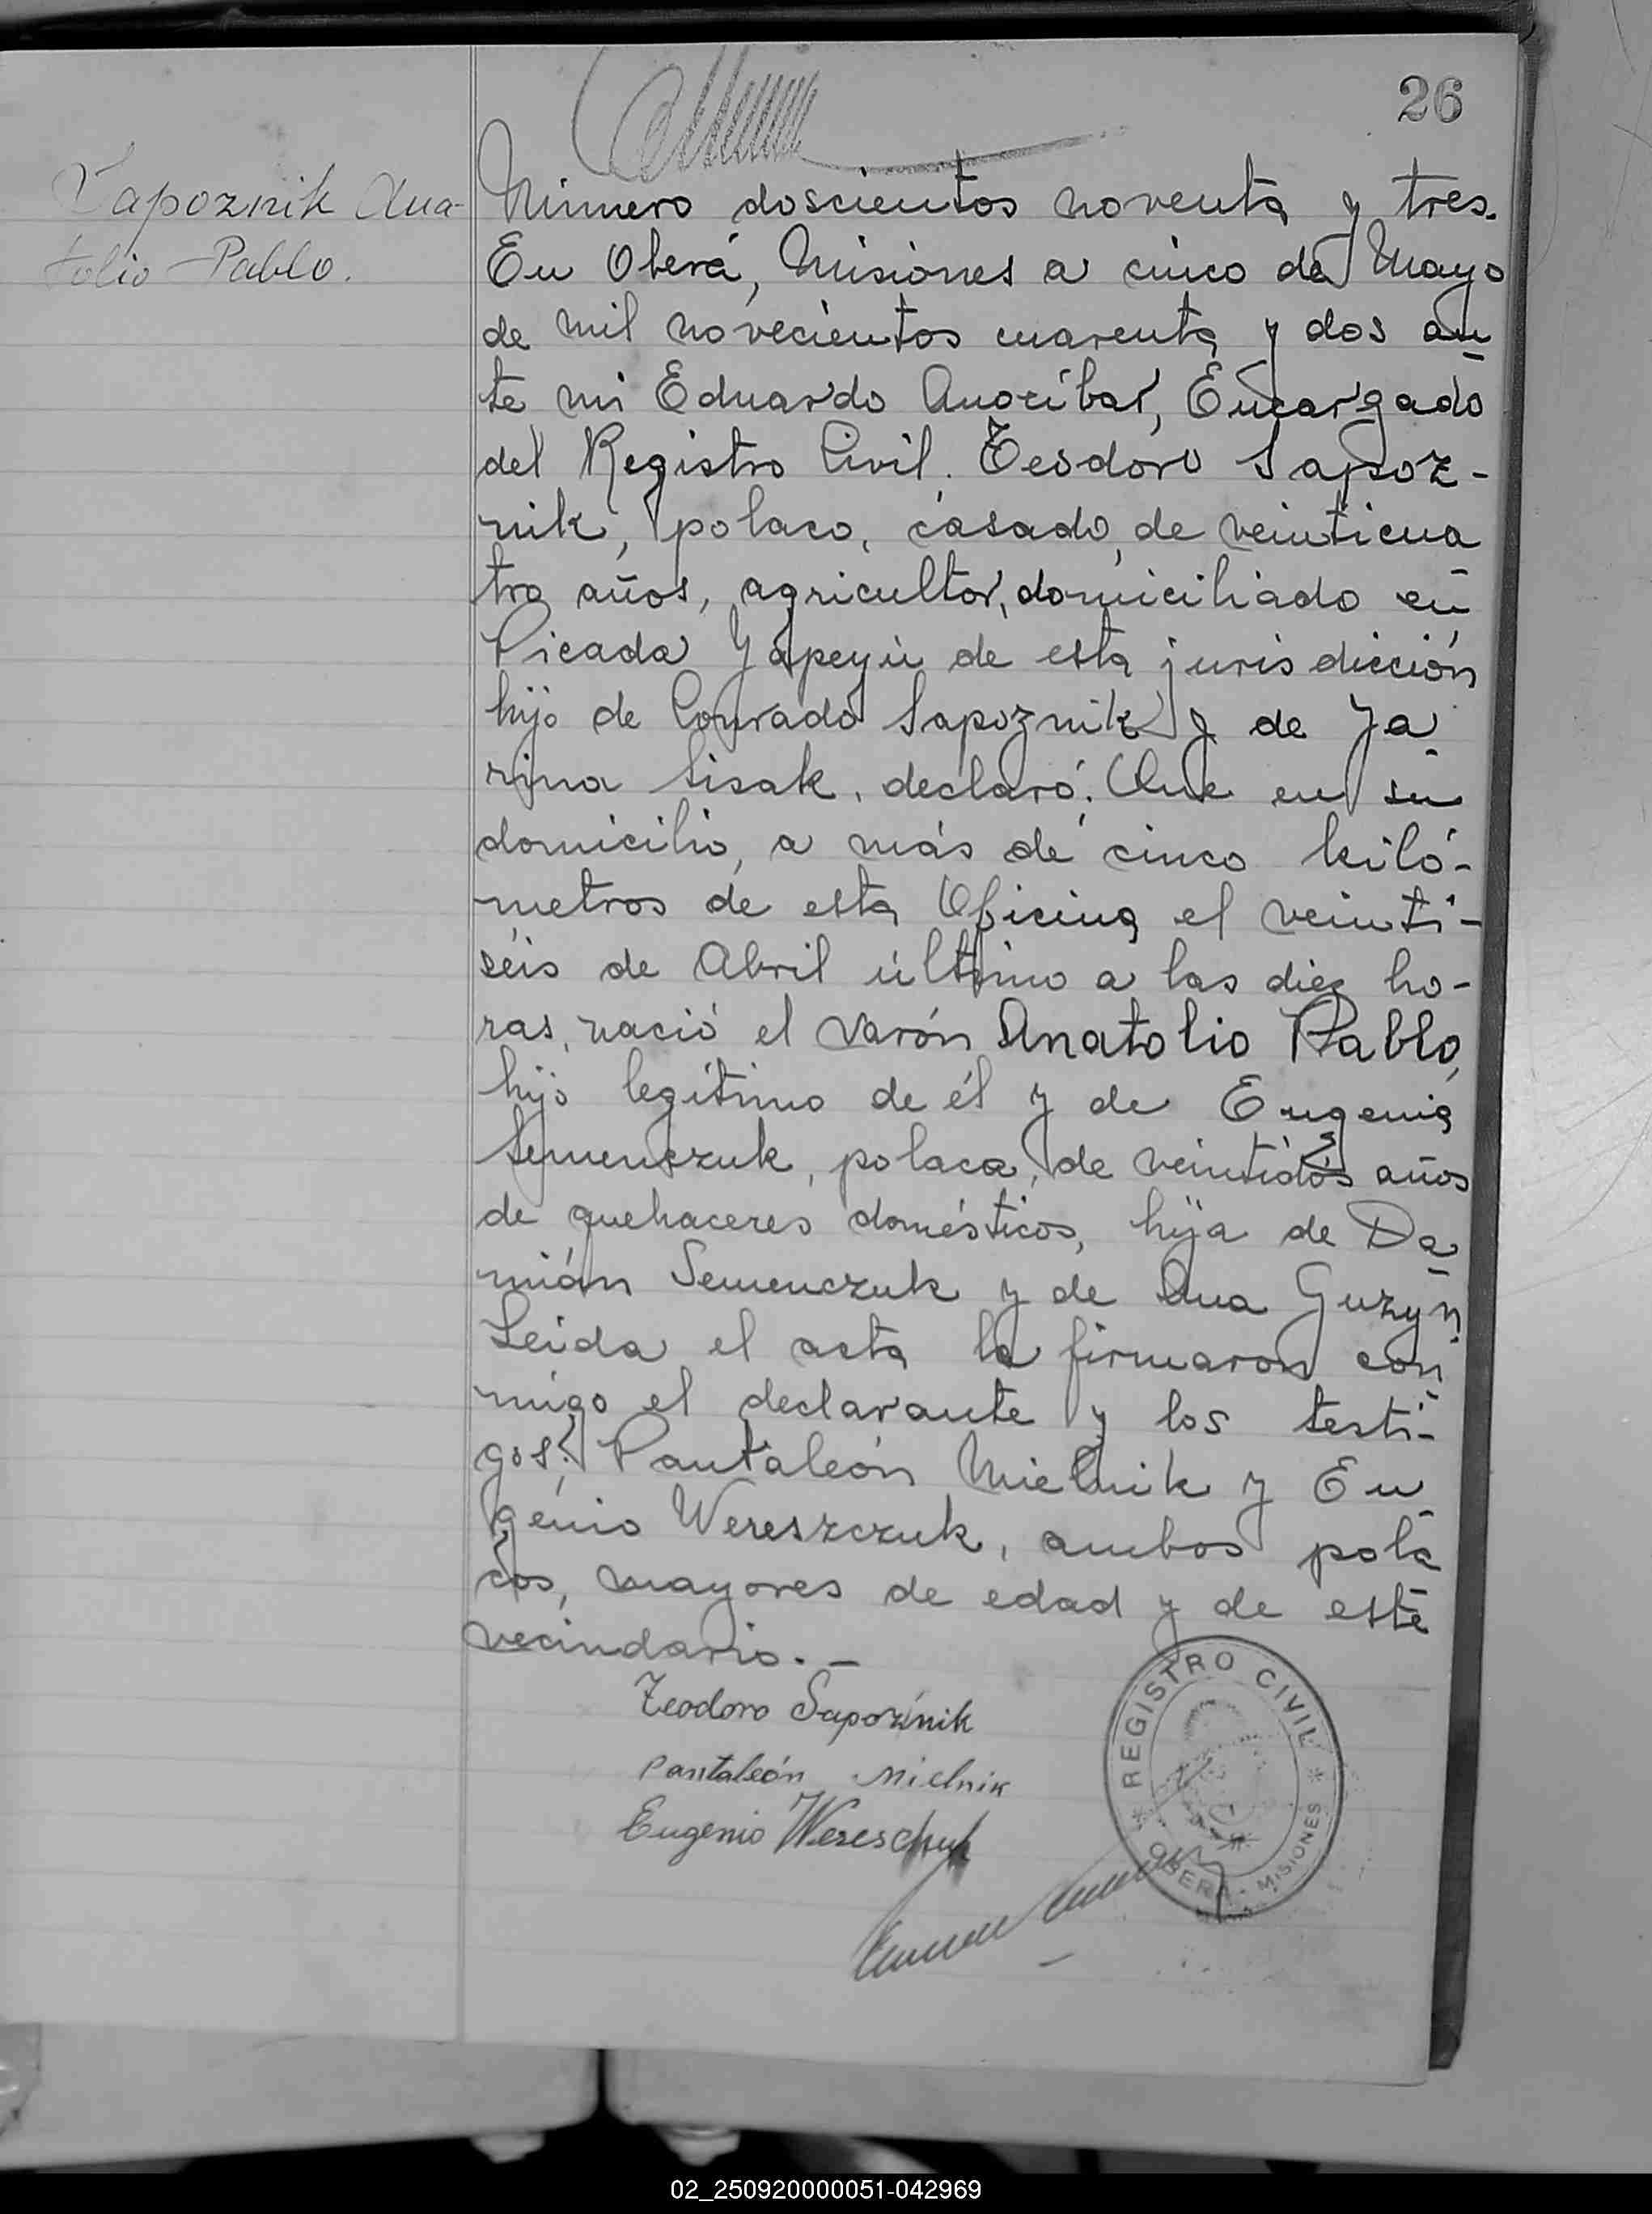 26
Sapoznik Ana-
tolio Pablo.
Número doscientos noventa y tres.
En Oberá, Misiones a cinco de Mayo
de mil novecientos cuarenta y dos an
te mi Eduardo Encargado
del Registro Civil. Teodoro Sapoz-
nik, polaco, casado, de veinticua
tro años, agricultor, domiciliado en
Picada Yapeyú de esta jurisdicción
hijo de Conrado Sapoznik y de Ja
rina Lisak, declaró: Que en su
domicilio, a más de cinco kiló-
metros de esta Oficina el veinti-
séis de Abril último a las diez ho-
ras, nació el varón Anatolio Pablo,
hijo legítimo de él y de Eugenia
Semenczuk, polaca, de veintidós años
de quehaceres domésticos, hija de Da
mián Semenczuk y de Ana Guzyn
Leida el acta la firmaron con
migo el declarante y los testi-
gos: Pantaleón Mielnik y Eu
genio Wereszczuk, ambos pola
cos, mayores de edad y de este
vecindario.-
Teodoro Sapoźnik
Pantaleón Mielnik
Eugenio Wereschuk
REGISTRO CIVIL
OBERA - MISIONES
02_250920000051-042969